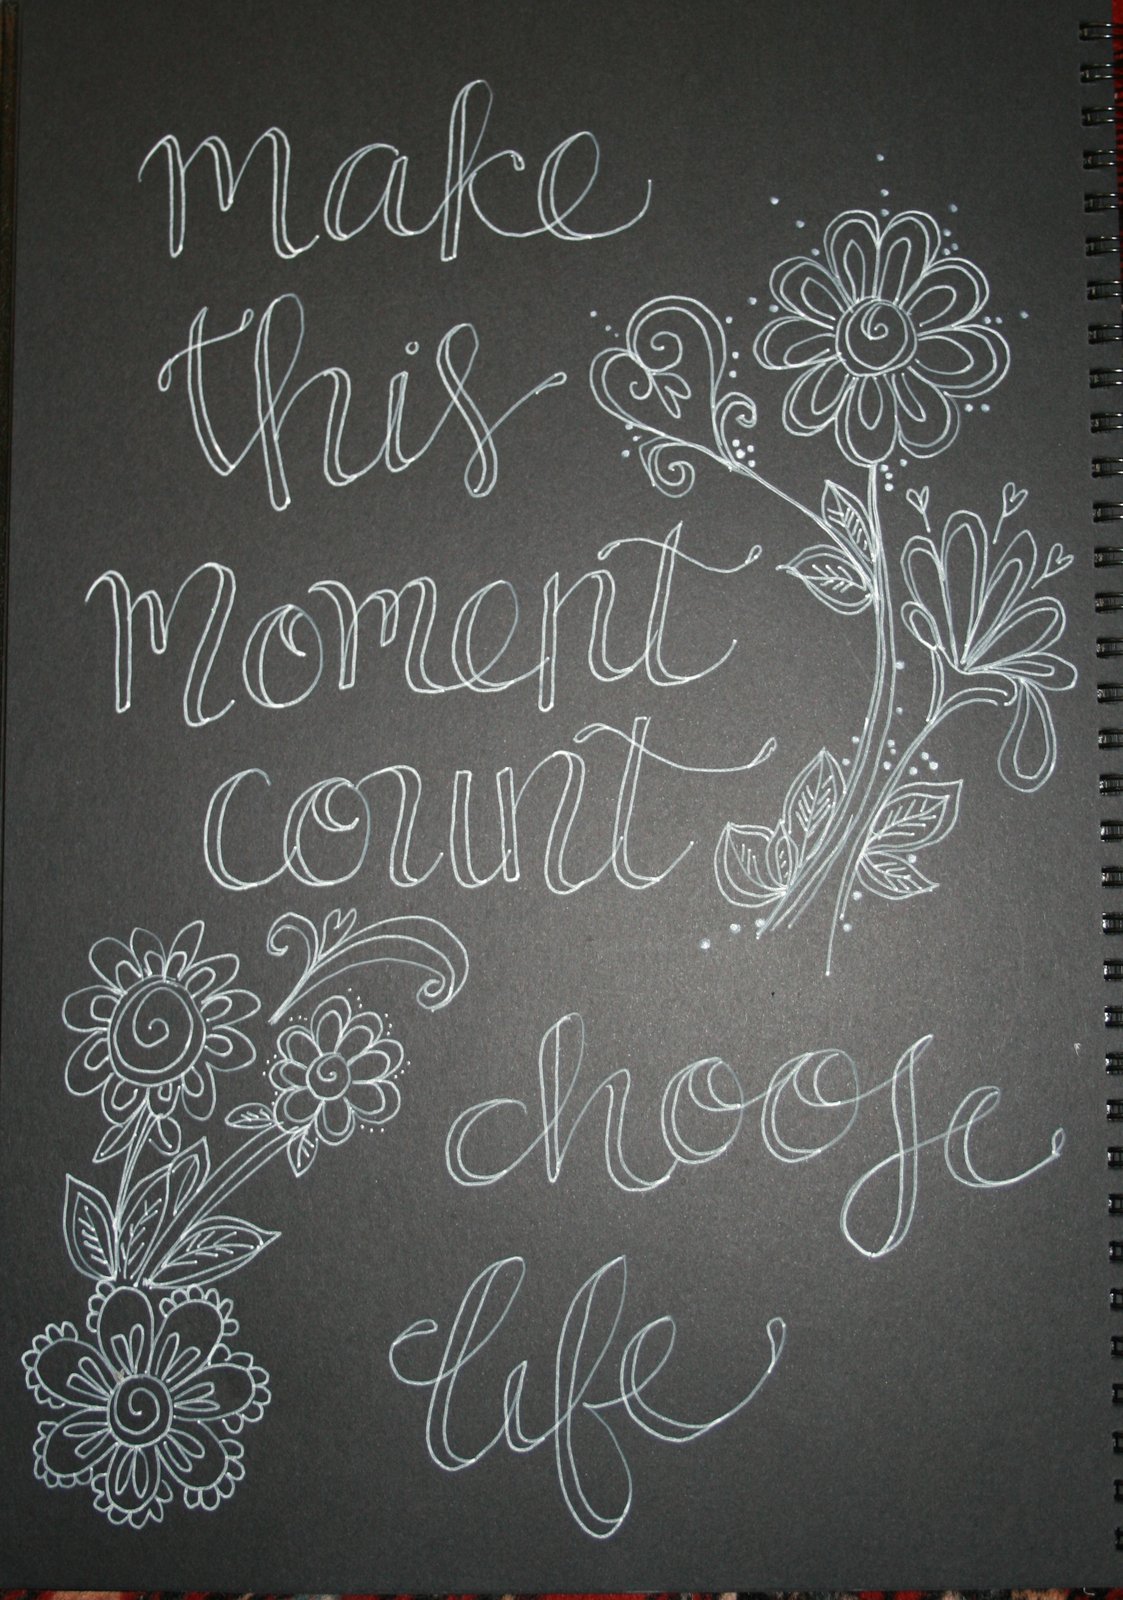 make
this
moment
count
choose
life